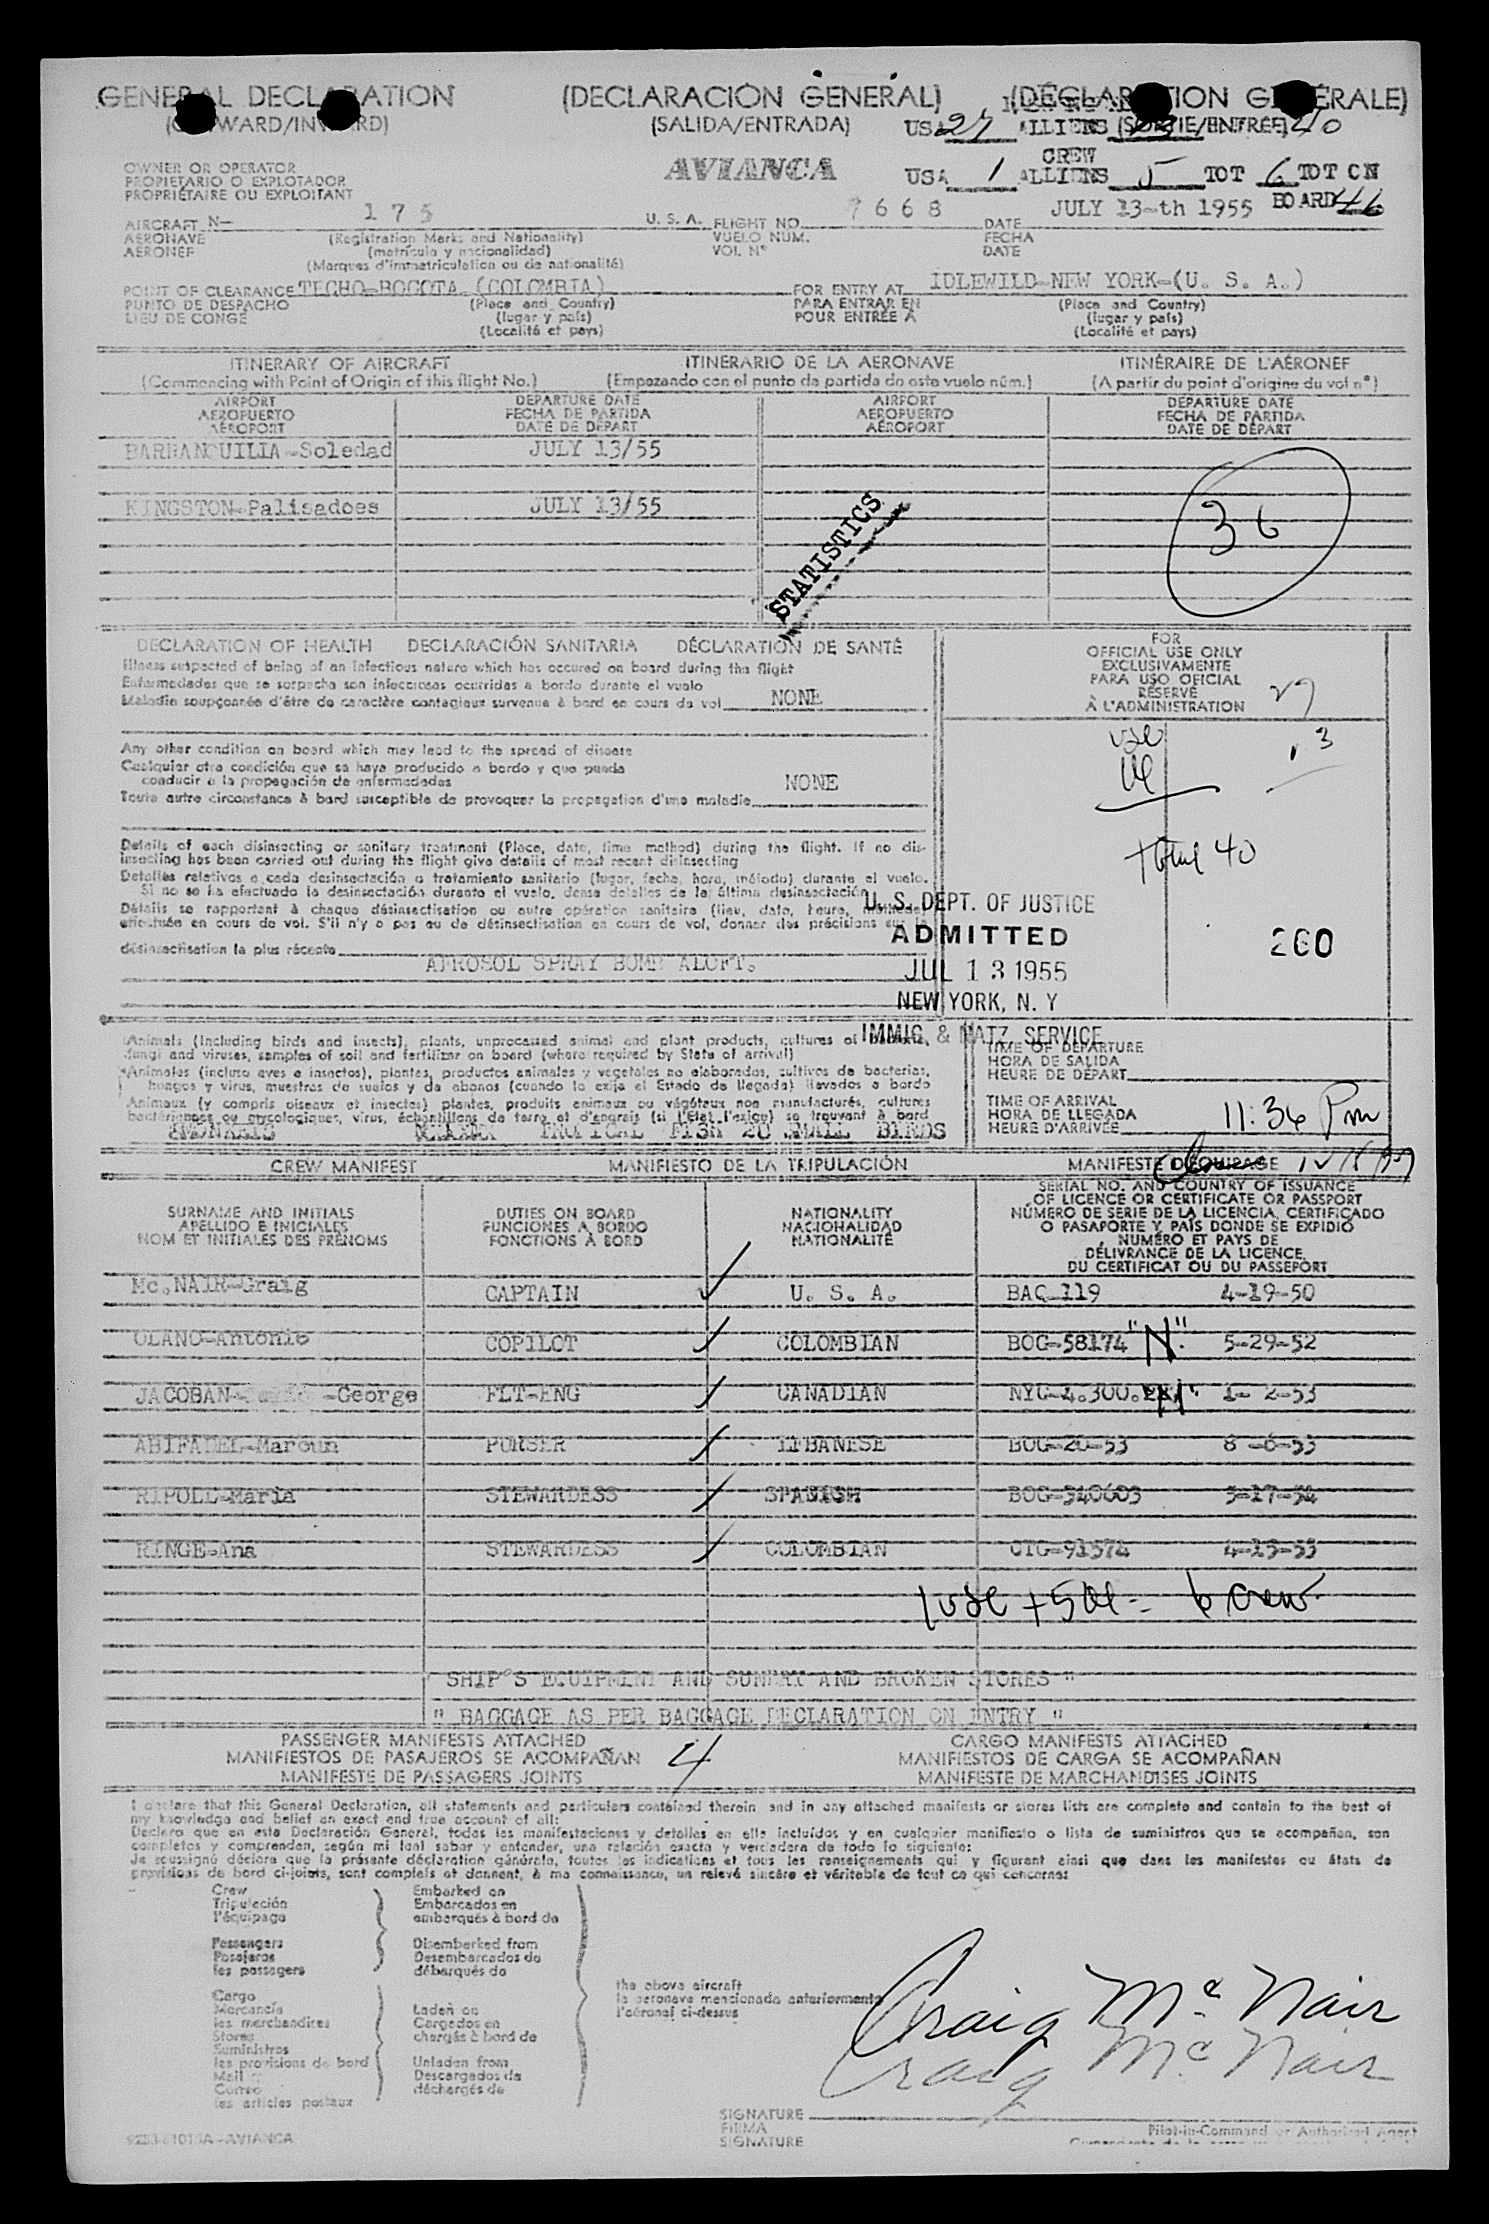 GENERAL DECLARATION (DECLARACIÓN GENERAL) (DÉCLARATION GÉNÉRALE)
(OUTWARD/INWARD) (SALIDA/ENTRADA) (SORTIE/ENTRÉE)
USA 27 ALLIENS 40
AVIANCA
CREW
USA 1 ALLIENS 5 TOT 6 TOT ON
BOARD 46
OWNER OR OPERATOR
PROPIETARIO O EXPLOTADOR
PROPRIÉTAIRE OU EXPLOITANT
AIRCRAFT N- 175 U. S. A. FLIGHT NO. 7668 DATE JULY 13-th 1955
AERONAVE (Registration Marks and Nationality) VUELO NUM. FECHA
AÉRONEF (matrícula y nacionalidad) VOL N° DATE
(Marques d'immatriculation ou de nationalité)
POINT OF CLEARANCE TECHO-BOGOTA (COLOMBIA) FOR ENTRY AT IDLEWILD-NEW YORK-(U. S. A.)
PUNTO DE DESPACHO (Place and Country) PARA ENTRAR EN (Place and Country)
LIEU DE CONGÉ (lugar y país) POUR ENTRÉE A (lugar y país)
(Localité et pays) (Localité et pays)
ITINERARY OF AIRCRAFT ITINERARIO DE LA AERONAVE ITINÉRAIRE DE L'AÉRONEF
(Commencing with Point of Origin of this flight No.) (Empezando con el punto de partida de este vuelo núm.) (A partir du point d'origine du vol n°)
AIRPORT DEPARTURE DATE AIRPORT DEPARTURE DATE
AEROPUERTO FECHA DE PARTIDA AEROPUERTO FECHA DE PARTIDA
AÉROPORT DATE DE DÉPART AÉROPORT DATE DE DÉPART
BARRANQUILLA-Soledad JULY 13/55
KINGSTON-Palisadoes JULY 13/55
36
STATISTICS
DECLARATION OF HEALTH DECLARACIÓN SANITARIA DÉCLARATION DE SANTÉ
Illness suspected of being of an infectious nature which has occured on board during the flight
Enfermedades que se sospecha son infecciosas ocurridas a bordo durante el vuelo
Maladie soupçonnée d'être de caractère contagieux survenue à bord en cours du vol NONE
FOR
OFFICIAL USE ONLY
EXCLUSIVAMENTE
PARA USO OFICIAL
RÉSERVÉ
À L'ADMINISTRATION
27
13
Total 40
260
Any other condition on board which may lead to the spread of disease
Cualquier otra condición que se haya producido a bordo y que pueda
conducir a la propagación de enfermedades NONE
Toute autre circonstance à bord susceptible de provoquer la propagation d'une maladie
Details of each disinsecting or sanitary treatment (Place, date, time method) during the flight. If no dis-
insecting has been carried out during the flight give details of most recent disinsecting
Detalles relativos a cada desinsectación o tratamiento sanitario (lugar, fecha, hora, método) durante el vuelo.
Si no se ha efectuado la desinsectación durante el vuelo, dense detalles de la última desinsectación
Détails se rapportant à chaque désinsectisation ou autre opération sanitaire (lieu, date, heure, méthode)
effectuée en cours de vol. S'il n'y a pas eu de désinsectisation en cours de vol, donner des précisions sur la
désinsectisation la plus récente AEROSOL SPRAY BOMB ALOFT.
U. S. DEPT. OF JUSTICE
ADMITTED
JUL 13 1955
NEW YORK, N. Y
IMMIG. & NATZ. SERVICE
Animals (Including birds and insects), plants, unprocessed animal and plant products, cultures of bacteria,
fungi and viruses, samples of soil and fertilizer on board (where required by State of arrival)
Animales (incluso aves e insectos), plantes, productos animales y vegetales no elaborados, cultivos de bacterias,
hongos y virus, muestras de suelos y de abonos (cuando lo exija el Estado de llegada) llevados a bordo
Animaux (y compris oiseaux et insectes) plantes, produits animaux ou végétaux non manufacturés, cultures
bactériennes ou mycologiques, virus, échantillons de terre et d'engrais (si l'État l'exige) se trouvant à bord
TROPICAL FISH 20 SMALL BIRDS
TIME OF DEPARTURE
HORA DE SALIDA
HEURE DE DÉPART
TIME OF ARRIVAL
HORA DE LLEGADA
HEURE D'ARRIVÉE 11:36 Pm
CREW MANIFEST MANIFIESTO DE LA TRIPULACIÓN MANIFESTE D'ÉQUIPAGE
SURNAME AND INITIALS DUTIES ON BOARD NATIONALITY SERIAL NO. AND COUNTRY OF ISSUANCE
APELLIDO E INICIALES FUNCIONES A BORDO NACIONALIDAD OF LICENCE OR CERTIFICATE OR PASSPORT
NOM ET INITIALES DES PRÉNOMS FONCTIONS À BORD NATIONALITÉ NÚMERO DE SERIE DE LA LICENCIA, CERTIFICADO
O PASAPORTE Y PAÍS DONDE SE EXPIDIÓ
NUMÉRO ET PAYS DE
DÉLIVRANCE DE LA LICENCE,
DU CERTIFICAT OU DU PASSEPORT
Mc.NAIR-Graig CAPTAIN U. S. A. BAQ-119 4-19-50
OLANO-Antonio COPILOT COLOMBIAN BOG-58174 "N". 5-29-52
JACOBAN- -George FLT-ENG CANADIAN NYC-4.300. 1- 2-53
ABIFADEL-Maroun PURSER LEBANESE BOG-20-53 8 -6-53
RIPOLL-Maria STEWARDESS SPANISH BOG-540603 5-17-54
RINGE-Ana STEWARDESS COLOMBIAN CTG-91574 4-13-55
1 usc + 5 al = 6 crew.
SHIP'S EQUIPMENT AND SUNDRY AND BROKEN STORES "
" BAGGAGE AS PER BAGGAGE DECLARATION ON ENTRY "
PASSENGER MANIFESTS ATTACHED CARGO MANIFESTS ATTACHED
MANIFIESTOS DE PASAJEROS SE ACOMPAÑAN 4 MANIFIESTOS DE CARGA SE ACOMPAÑAN
MANIFESTE DE PASSAGERS JOINTS MANIFESTE DE MARCHANDISES JOINTS
I declare that this General Declaration, all statements and particulars contained therein and in any attached manifests or stores lists are complete and contain to the best of
my knowledge and belief an exact and true account of all:
Declaro que en esta Declaración General, todas las manifestaciones y detalles en ella incluidos y en cualquier manifiesto o lista de suministros que se acompañan, son
completos y comprenden, según mi leal saber y entender, una relación exacta y verdadera de todo lo siguiente:
Je soussigné déclare que la présente déclaration générale, toutes les indications et tous les renseignements qui y figurent ainsi que dans les manifestes ou états de
provisions de bord ci-joints, sont complets et donnent, à ma connaissance, un relevé sincère et véritable de tout ce qui concerne:
Crew Embarked on
Tripulación Embarcados en
l'équipage embarqués à bord de
Passengers Disembarked from
Pasajeros Desembarcados de
les passagers débarqués de
the above aircraft
la aeronave mencionada anteriormente
l'aéronef ci-dessus
Cargo
Mercancía Laden on
les marchandises Cargados en
Stores chargés à bord de
Suministros
les provisions de bord Unladen from
Mail Descargados de
Correo déchargés de
les articles postaux
Craig Mc Nair
Craig Mc Nair
SIGNATURE
FIRMA Pilot-in-Command or Authorized Agent
SIGNATURE